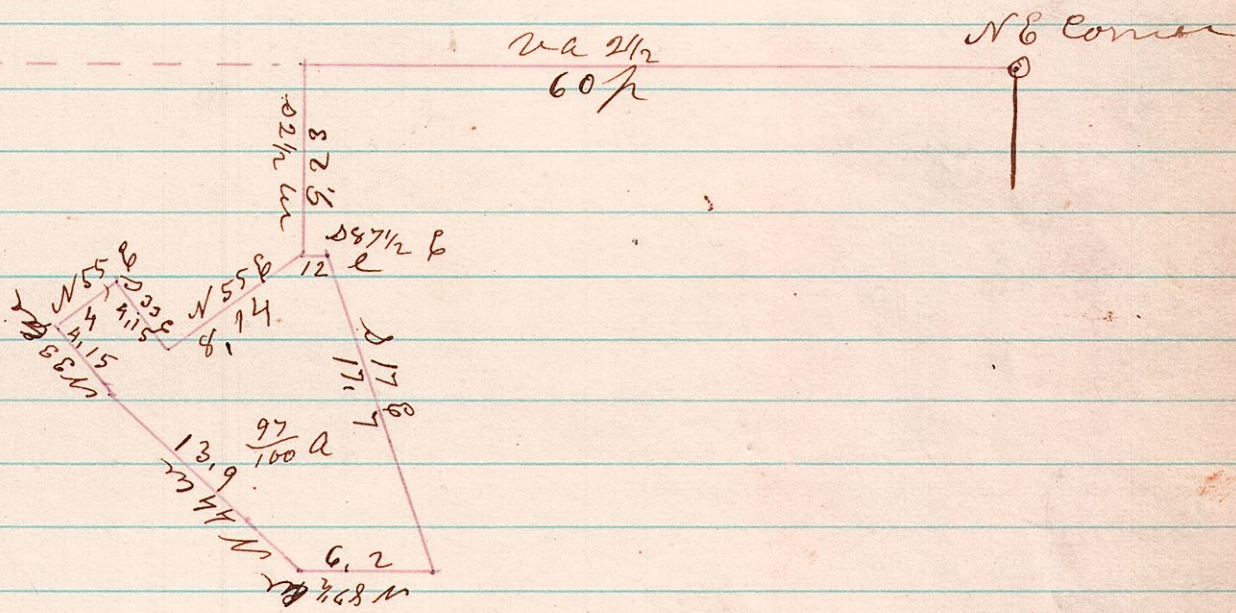 NE Corner
va 2 1/2
60 p
S 2 1/2 W
S87 1/2 E
12
N 55 E
8, 14
N 55 E
4
S 33 E
4,15
4,15
N 33 W
S 17 E
17,
97/100 A
13,9
N 44 W
6, 2
N 87 1/2 W